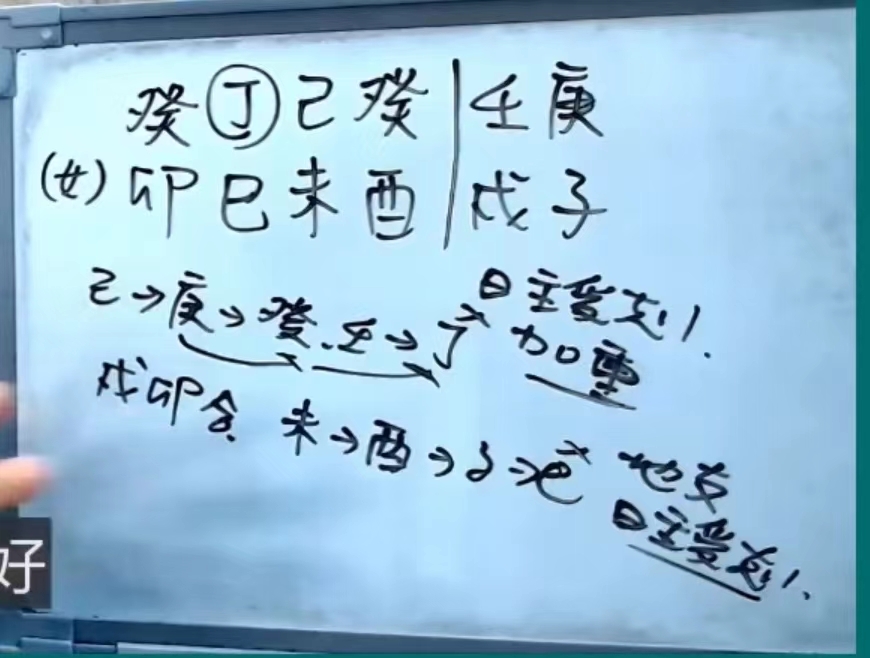 癸丁己癸|壬庚
(女)卯巳未酉|戌子
己→庚→癸、壬→丁 日主受克!
加重
戌卯合、未→酉→子→巳 地支
日主受克!
好